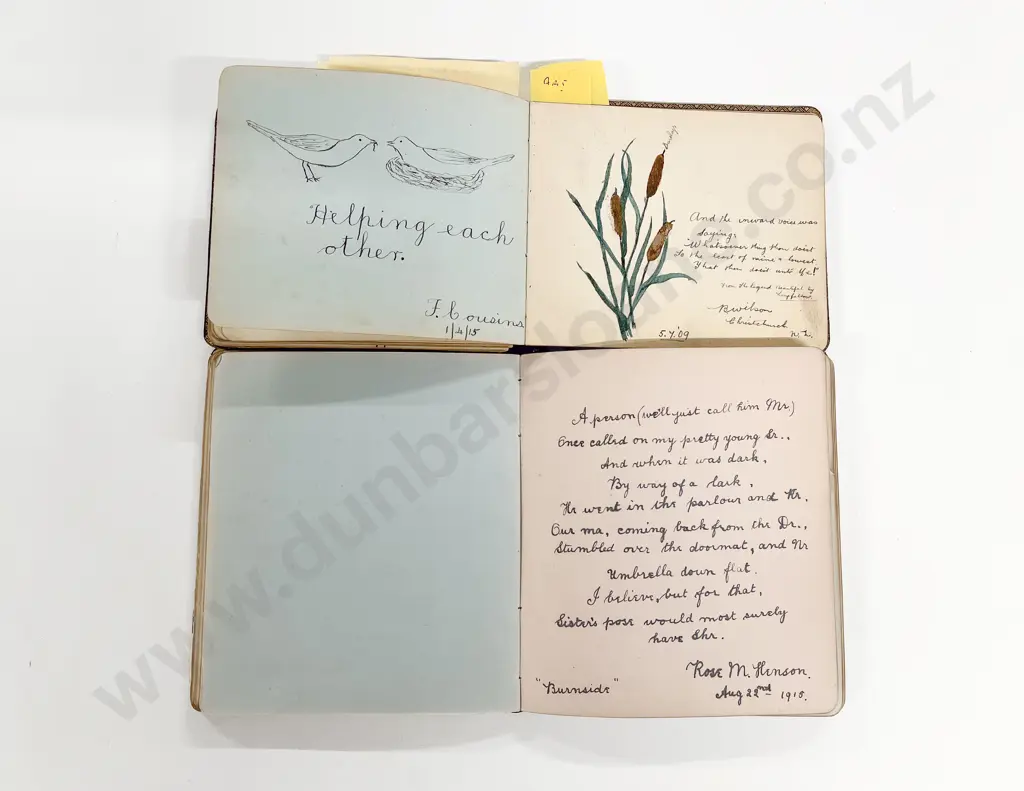 Helping each
other.
F. Cousins
1/4/15
And the inward voice was
saying:
"Whatsoever thing thou doest
To the least of mine & lowest,
That thou doest unto Me!"
From the legend Beautiful by
Longfellow.
B Wilson
Christchurch
N.Z.
5.7.'09
A person (we'll just call him Mr.)
Once called on my pretty young Sr..,
And when it was dark,
By way of a lark,
He went in the parlour and Kr.
Our ma, coming back from the Dr..,
Stumbled over the doormat, and Nr
Umbrella down flat.
I believe, but for that,
Sister's pose would most surely
have Shr.
Rose M. Henson.
"Burnside"
Aug 22nd 1915.
www.dunbarsloane.co.nz